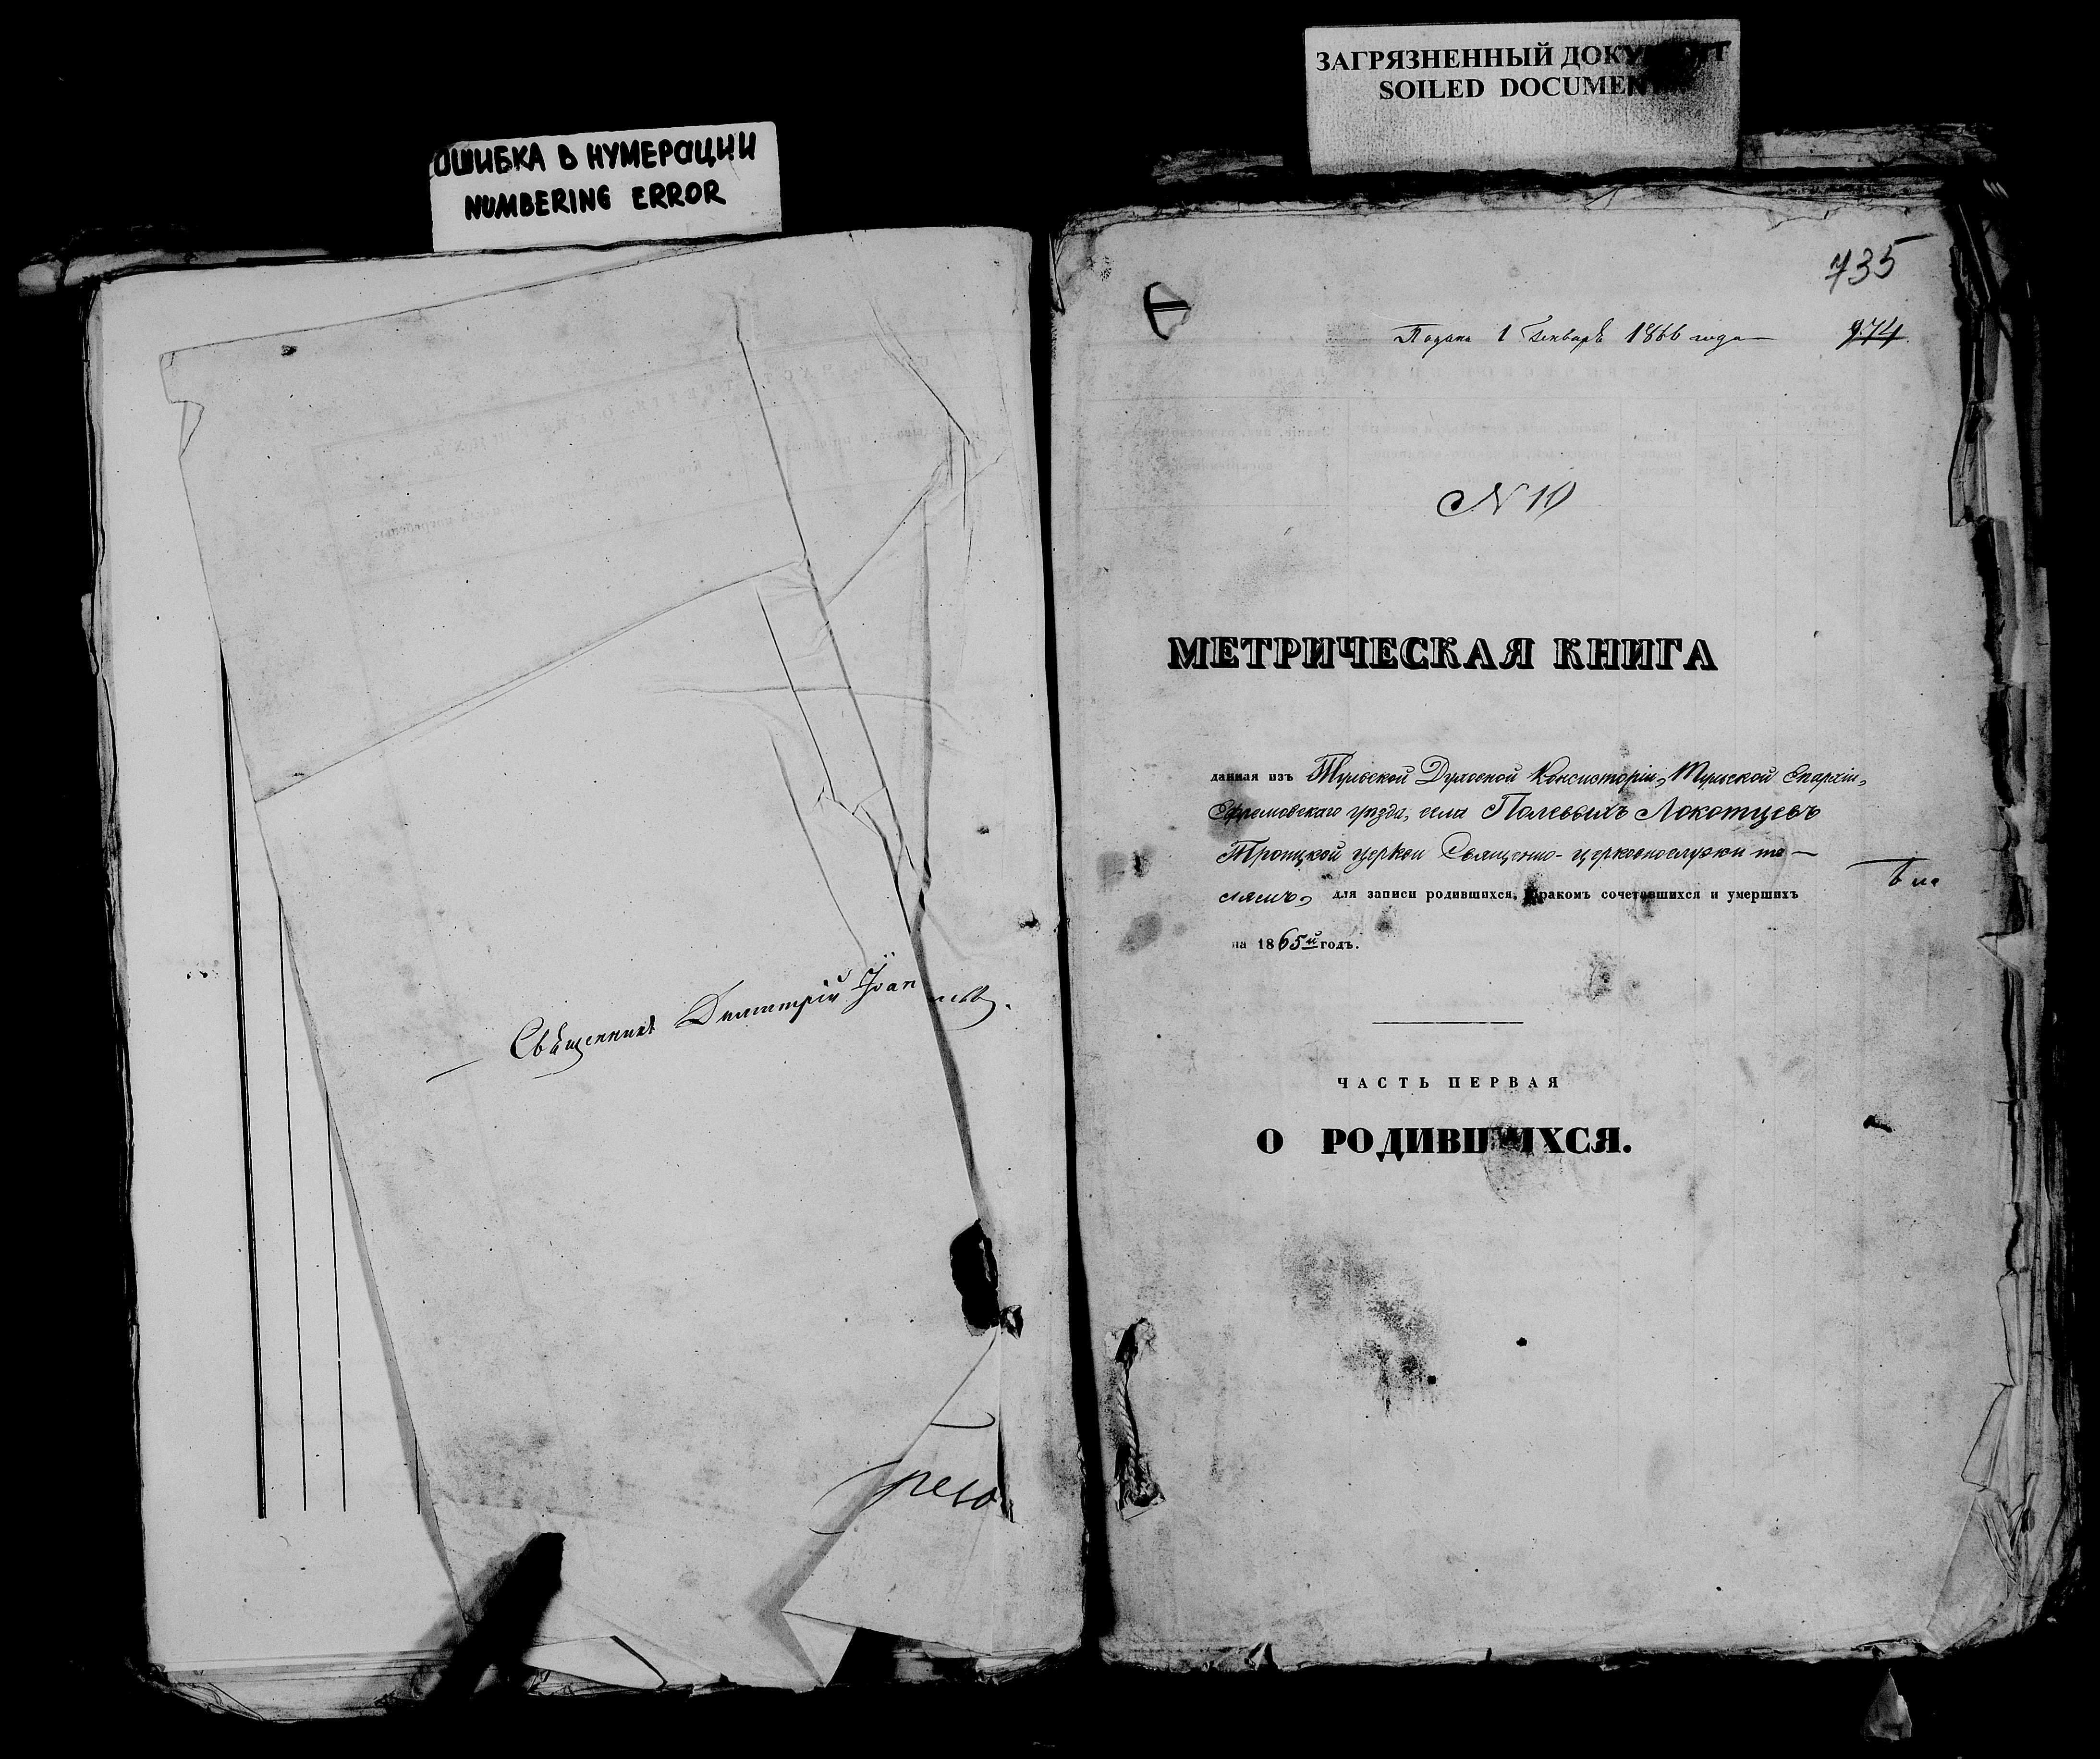 ОШИБКА В НУМЕРАЦИИ
NUMBERING ERROR
Священникъ Димитрій Іоан
ЗАГРЯЗНЕННЫЙ ДОКУМЕНТ
SOILED DOCUMENT
735
Подана 1 Генваря 1866 года
974
N 10
МЕТРИЧЕСКАЯ КНИГА
данная изъ Тульской Духовной Консисторіи, Тульской Епархіи,
Ефремовскаго уѣзда, села Полевыхъ Локотцевъ
Троицкой церкви Священно-церковнослужите-
лямъ, для записи родившихся, бракомъ сочетавшихся и умершихъ
на 1865й годъ.
ЧАСТЬ ПЕРВАЯ
О РОДИВШИХСЯ.